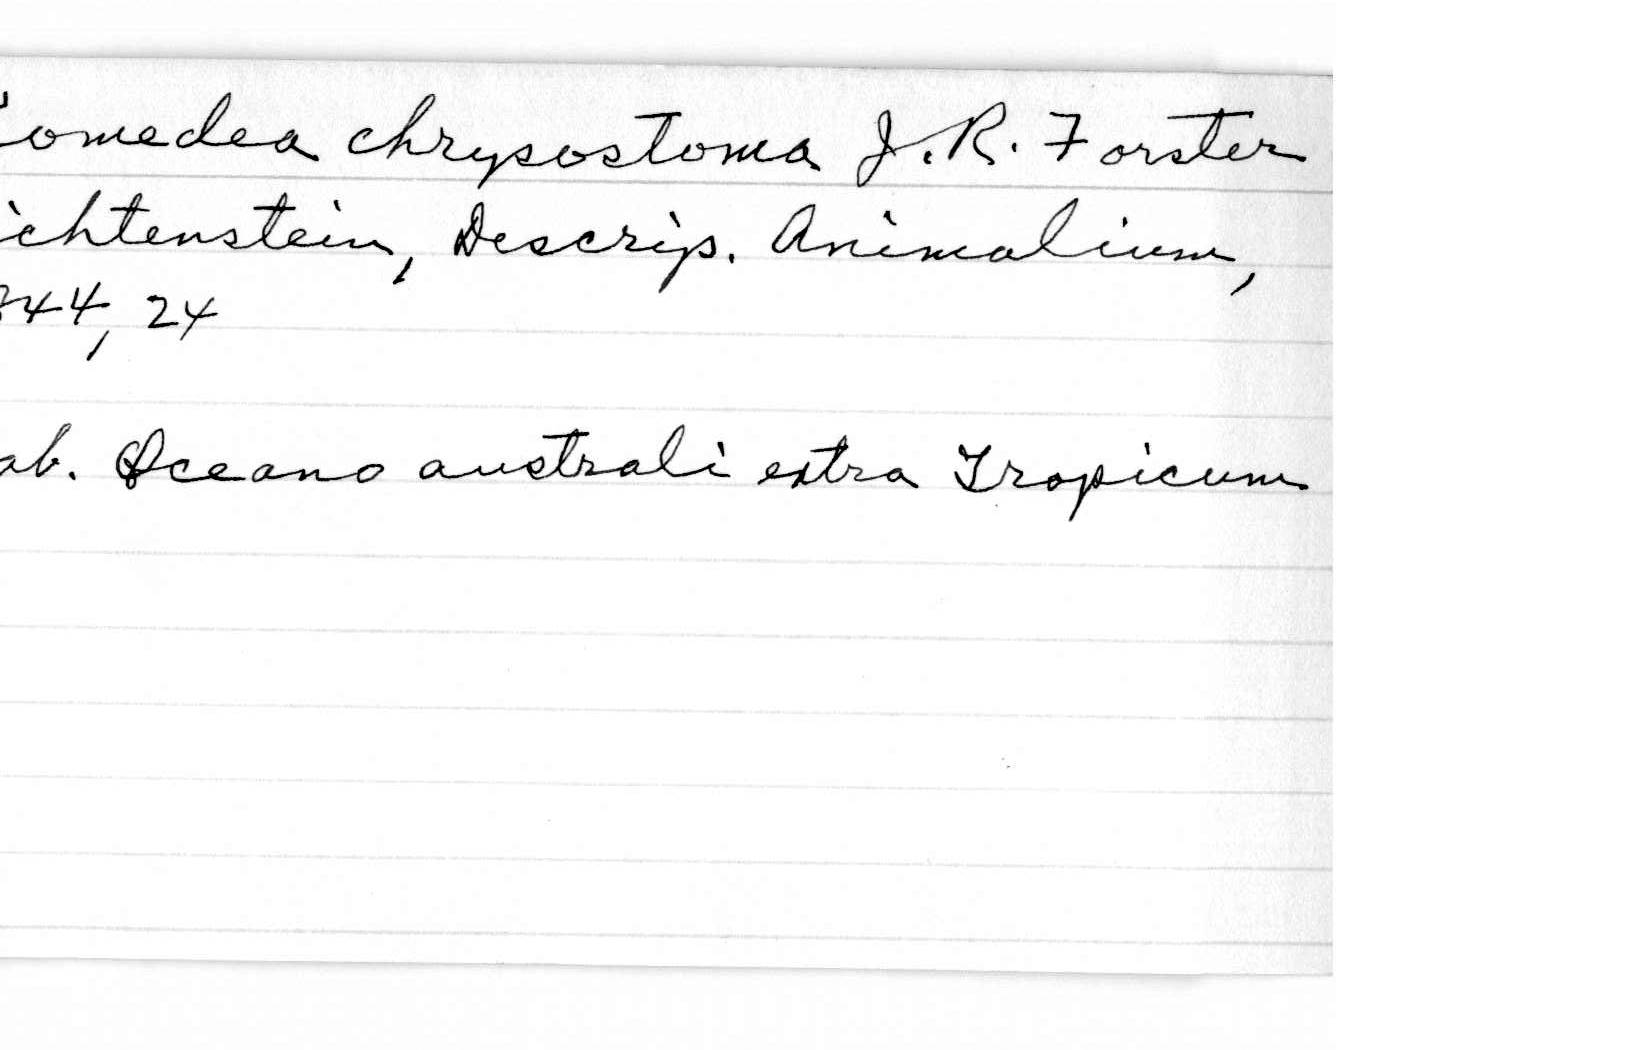 iomedea chrysostoma J. R. Forster
ichtenstein, Descrip. Animalium,
844, 24
ab. Oceano australi extra Tropicum